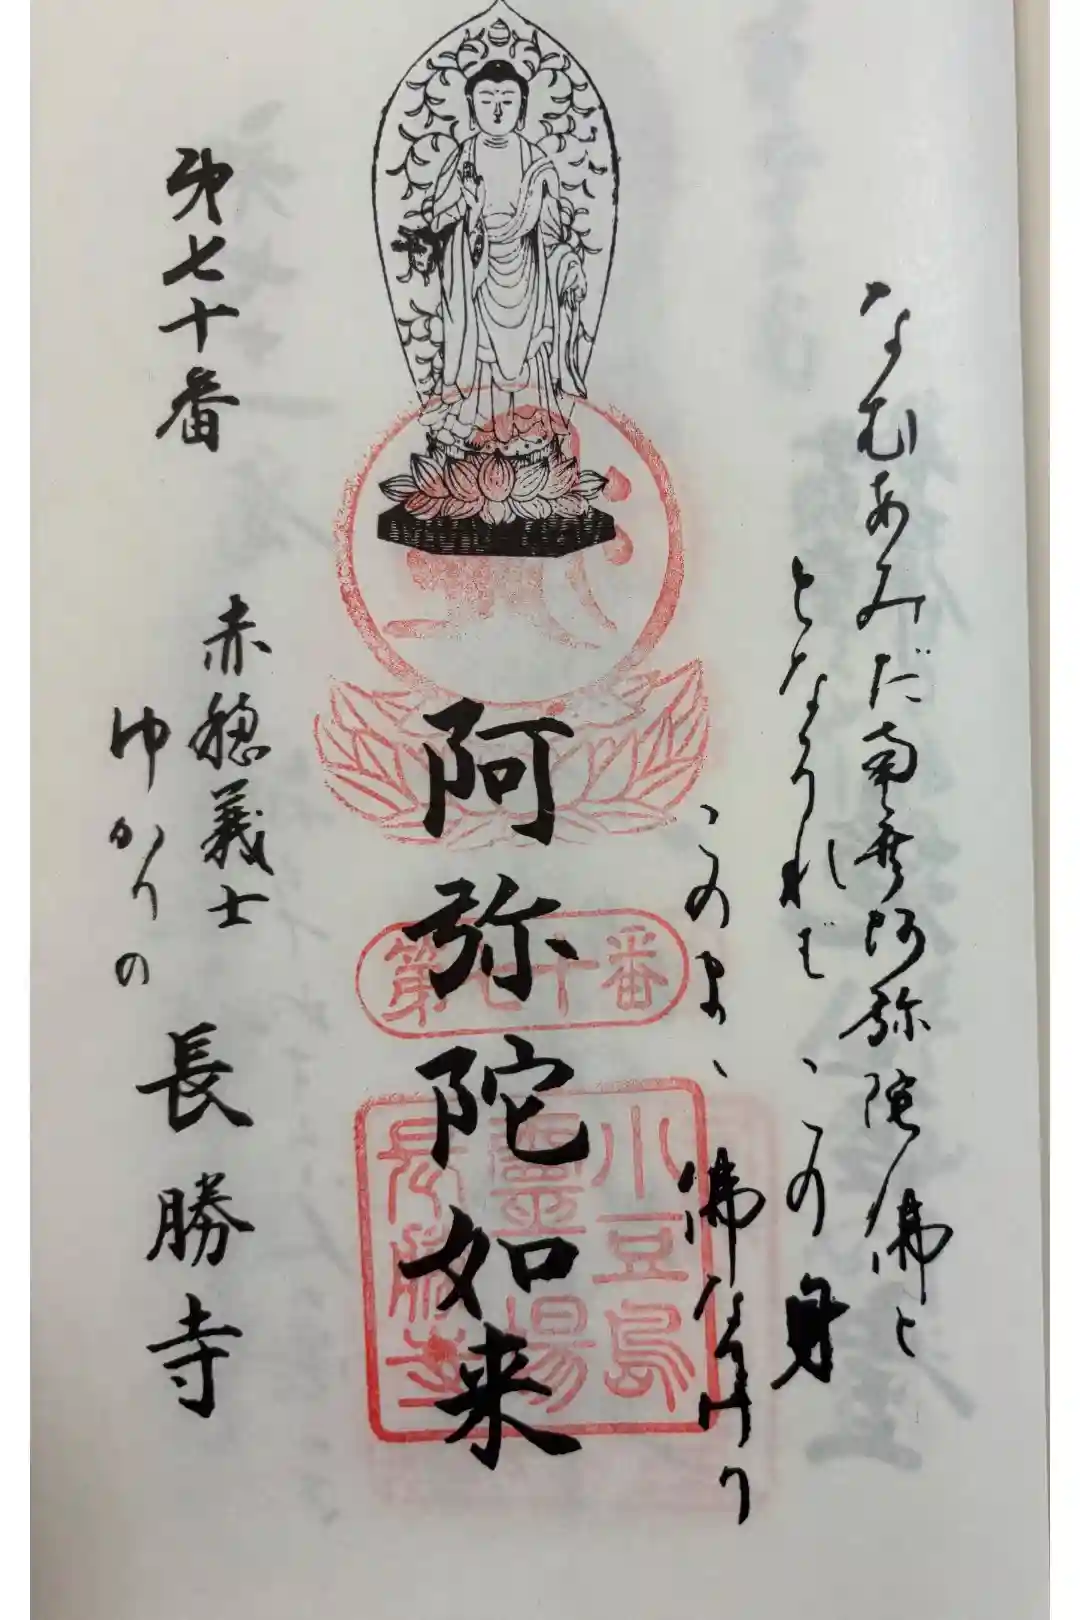 なむあみだ南無阿弥陀佛と
となうれば、この身
このまゝ佛なりけり
阿弥陀如来
第七十番
小豆島
靈場
長勝寺
第七十番
赤穂義士
ゆかりの
長勝寺